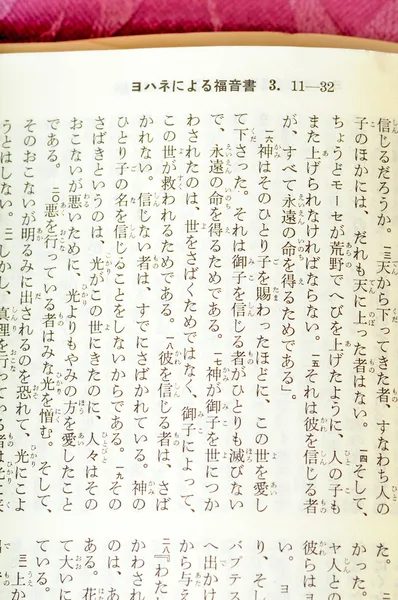 ヨハネによる福音書 3. 11―32
信じるだろうか。一三天から下ってきた者、すなわち人の
子のほかには、だれも天に上った者はない。一四そして、
ちょうどモーセが荒野でへびを上げたように、人の子も
また上げられなければならない。一五それは彼を信じる者
が、すべて永遠の命を得るためである」。
一六神はそのひとり子を賜わったほどに、この世を愛し
て下さった。それは御子を信じる者がひとりも滅びない
で、永遠の命を得るためである。一七神が御子を世につか
わされたのは、世をさばくためではなく、御子によって、
この世が救われるためである。一八彼を信じる者は、さば
かれない。信じない者は、すでにさばかれている。神の
ひとり子の名を信じることをしないからである。一九その
さばきというのは、光がこの世にきたのに、人々はその
おこないが悪いために、光よりもやみの方を愛したこと
である。二〇悪を行っている者はみな光を憎む。そして、
そのおこないが明るみに出されるのを恐れて、光にこよ
うとはしない。二一しかし、真理を行っている者は光に
た。
かった。
ヤ人との
彼らはヨ
い。
り、そし
バプテス
へ出かけ
から与え
二八『わたし
かわされ
のは、あ
ある。花
て大いに
ている。
三一上か